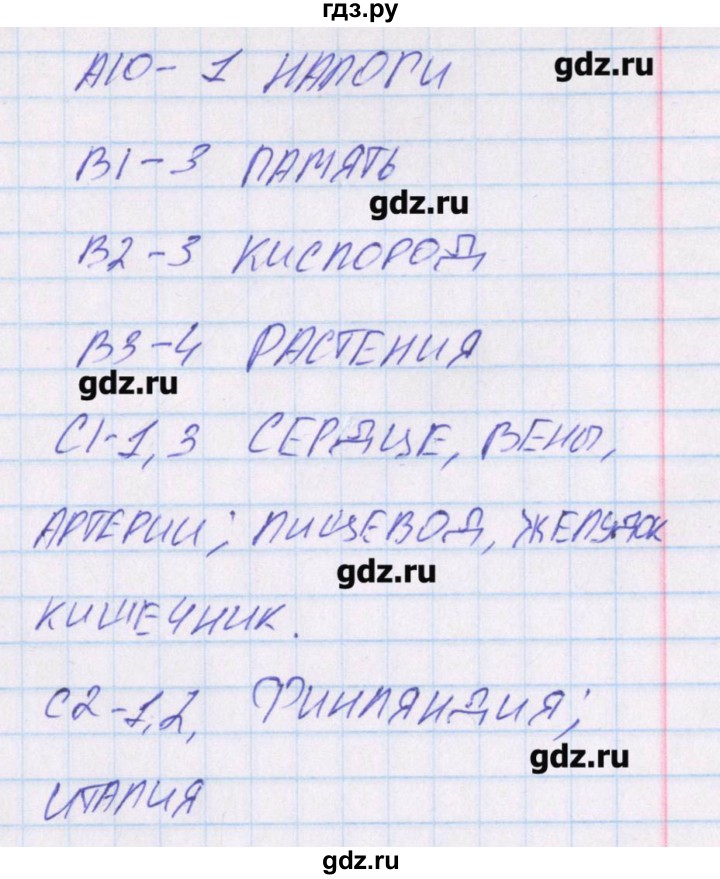 гдз.ру
А10- 1 НАЛОГИ
gdz.ru
В1-3 ПАМЯТЬ
gdz.ru
В2-3 КИСЛОРОД
В3-4 РАСТЕНИЯ
gdz.ru
С1-1,3 СЕРДЦЕ, ВЕНЫ,
АРТЕРИИ; ПИЩЕВОД, ЖЕЛУДОК
gdz.ru
КИШЕЧНИК.
С2-1,2, ФИНЛЯНДИЯ;
gdz.ru
ИТАЛИЯ
gdz.ru